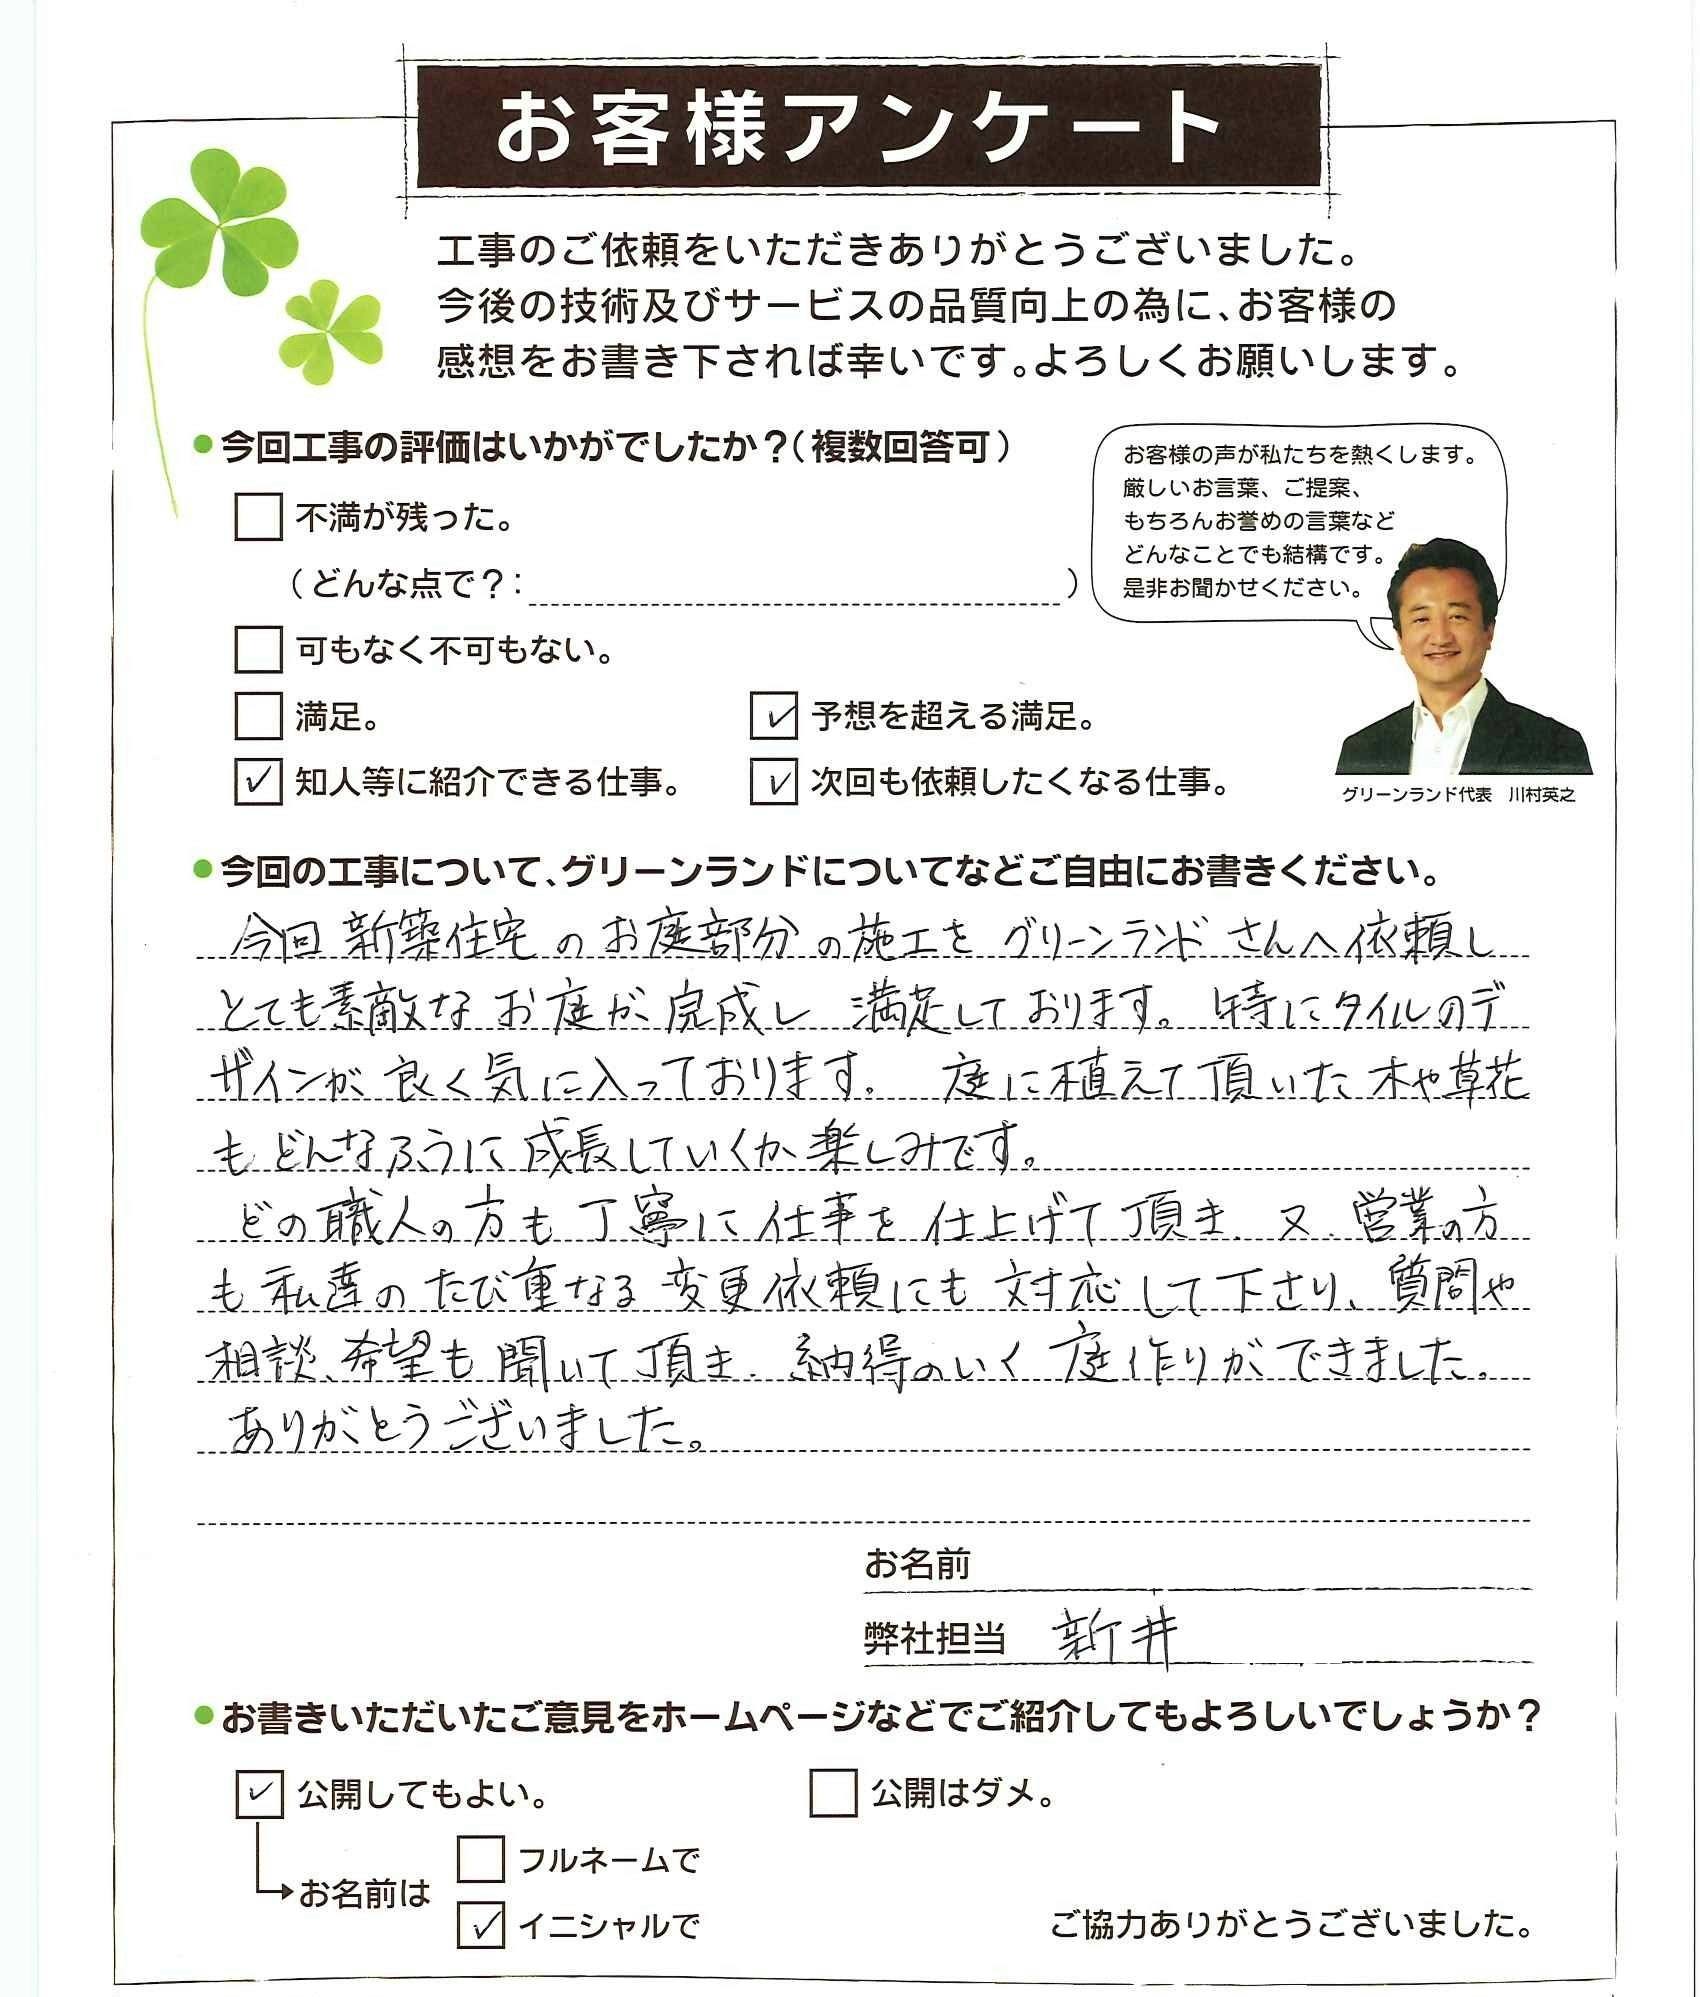 お客様アンケート
工事のご依頼をいただきありがとうございました。
今後の技術及びサービスの品質向上の為に、お客様の
感想をお書き下されば幸いです。よろしくお願いします。
●今回工事の評価はいかがでしたか？（複数回答可）
不満が残った。
（どんな点で？： ）
可もなく不可もない。
満足。
✓ 予想を超える満足。
✓ 知人等に紹介できる仕事。
✓ 次回も依頼したくなる仕事。
お客様の声が私たちを熱くします。
厳しいお言葉、ご提案、
もちろんお誉めの言葉など
どんなことでも結構です。
是非お聞かせください。
グリーンランド代表 川村英之
●今回の工事について、グリーンランドについてなどご自由にお書きください。
今回 新築住宅のお庭部分の施工を グリーンランドさんへ依頼し
とても素敵な お庭が 完成し 満足しております。特にタイルのデ
ザインが 良く気に入っております。 庭に植えて頂いた 木や草花
も どんなふうに 成長していくか 楽しみです。
どの職人の方も 丁寧に 仕事を 仕上げて 頂き、又、営業の方
も 私達の たび重なる 変更依頼にも 対応して下さり、質問や
相談、希望も 聞いて頂き、納得のいく 庭作りが できました。
ありがとうございました。
お名前
弊社担当 新井
●お書きいただいたご意見をホームページなどでご紹介してもよろしいでしょうか？
✓ 公開してもよい。
公開はダメ。
お名前は
フルネームで
✓ イニシャルで
ご協力ありがとうございました。